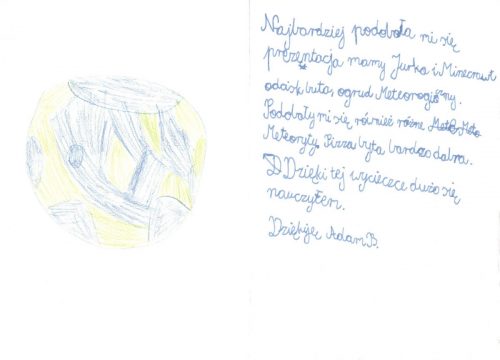 Najbardziej podobała mi się
prezentacja mamy Jurka i Minecraft
odcisk buta, ogrud Meteorogiczny.
Podobały mi się równierz różne
Meteoryty. Pizza była bardzo dobra.
Dzięki tej wycieczce dużo się
nauczyłem.
Dziękuję Adam B.